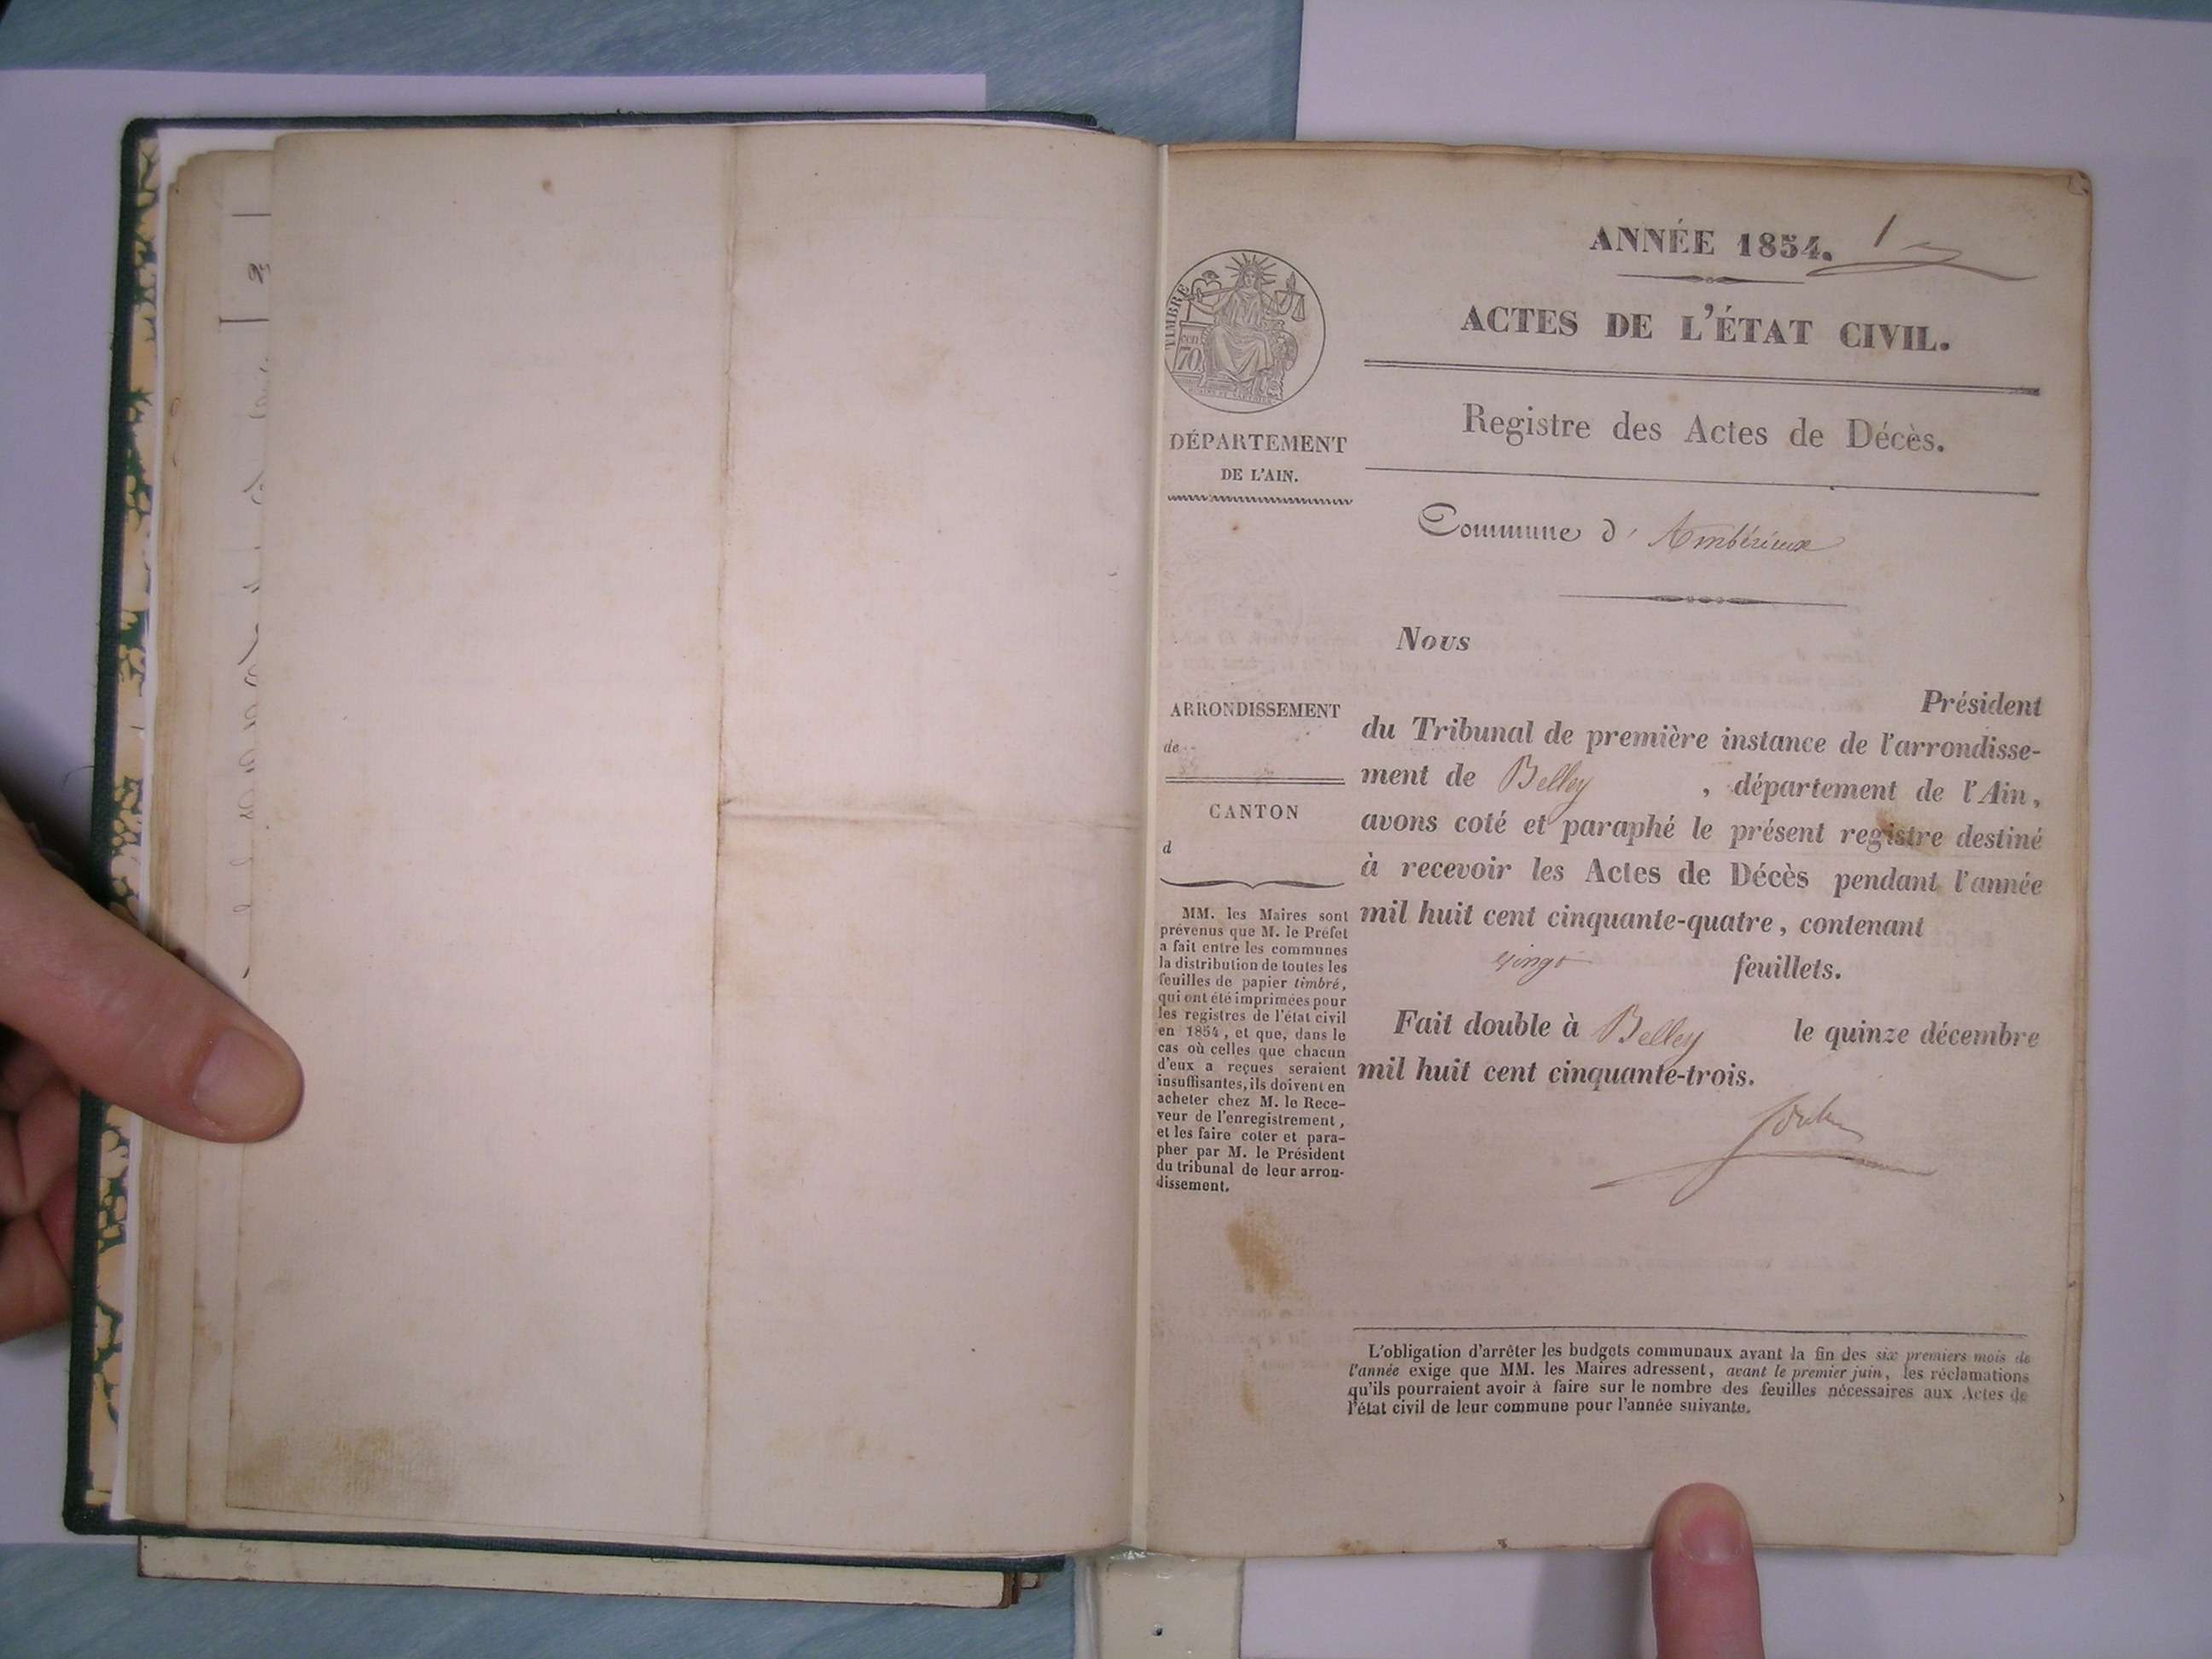 ANNÉE 1854. 1
ACTES DE L'ÉTAT CIVIL.
TIMBRE
cen
70
DÉPARTEMENT
DE L'AIN.
Registre des Actes de Décès.
Commune d' Ambérieux
Nous
Président
du Tribunal de première instance de l'arrondisse-
ment de Belley , département de l'Ain,
avons coté et paraphé le présent registre destiné
à recevoir les Actes de Décès pendant l'année
mil huit cent cinquante-quatre, contenant
vingt feuillets.
Fait double à Belley le quinze décembre
mil huit cent cinquante-trois.
ARRONDISSEMENT
de
CANTON
d
MM. les Maires sont
prévenus que M. le Préfet
a fait entre les communes
la distribution de toutes les
feuilles de papier timbré,
qui ont été imprimées pour
les registres de l'état civil
en 1854, et que, dans le
cas où celles que chacun
d'eux a reçues seraient
insuffisantes, ils doivent en
acheter chez M. le Rece-
veur de l'enregistrement,
et les faire coter et para-
pher par M. le Président
du tribunal de leur arron-
dissement.
L'obligation d'arrêter les budgets communaux avant la fin des six premiers mois de
l'année exige que MM. les Maires adressent, avant le premier juin, les réclamations
qu'ils pourraient avoir à faire sur le nombre des feuilles nécessaires aux Actes de
l'état civil de leur commune pour l'année suivante.